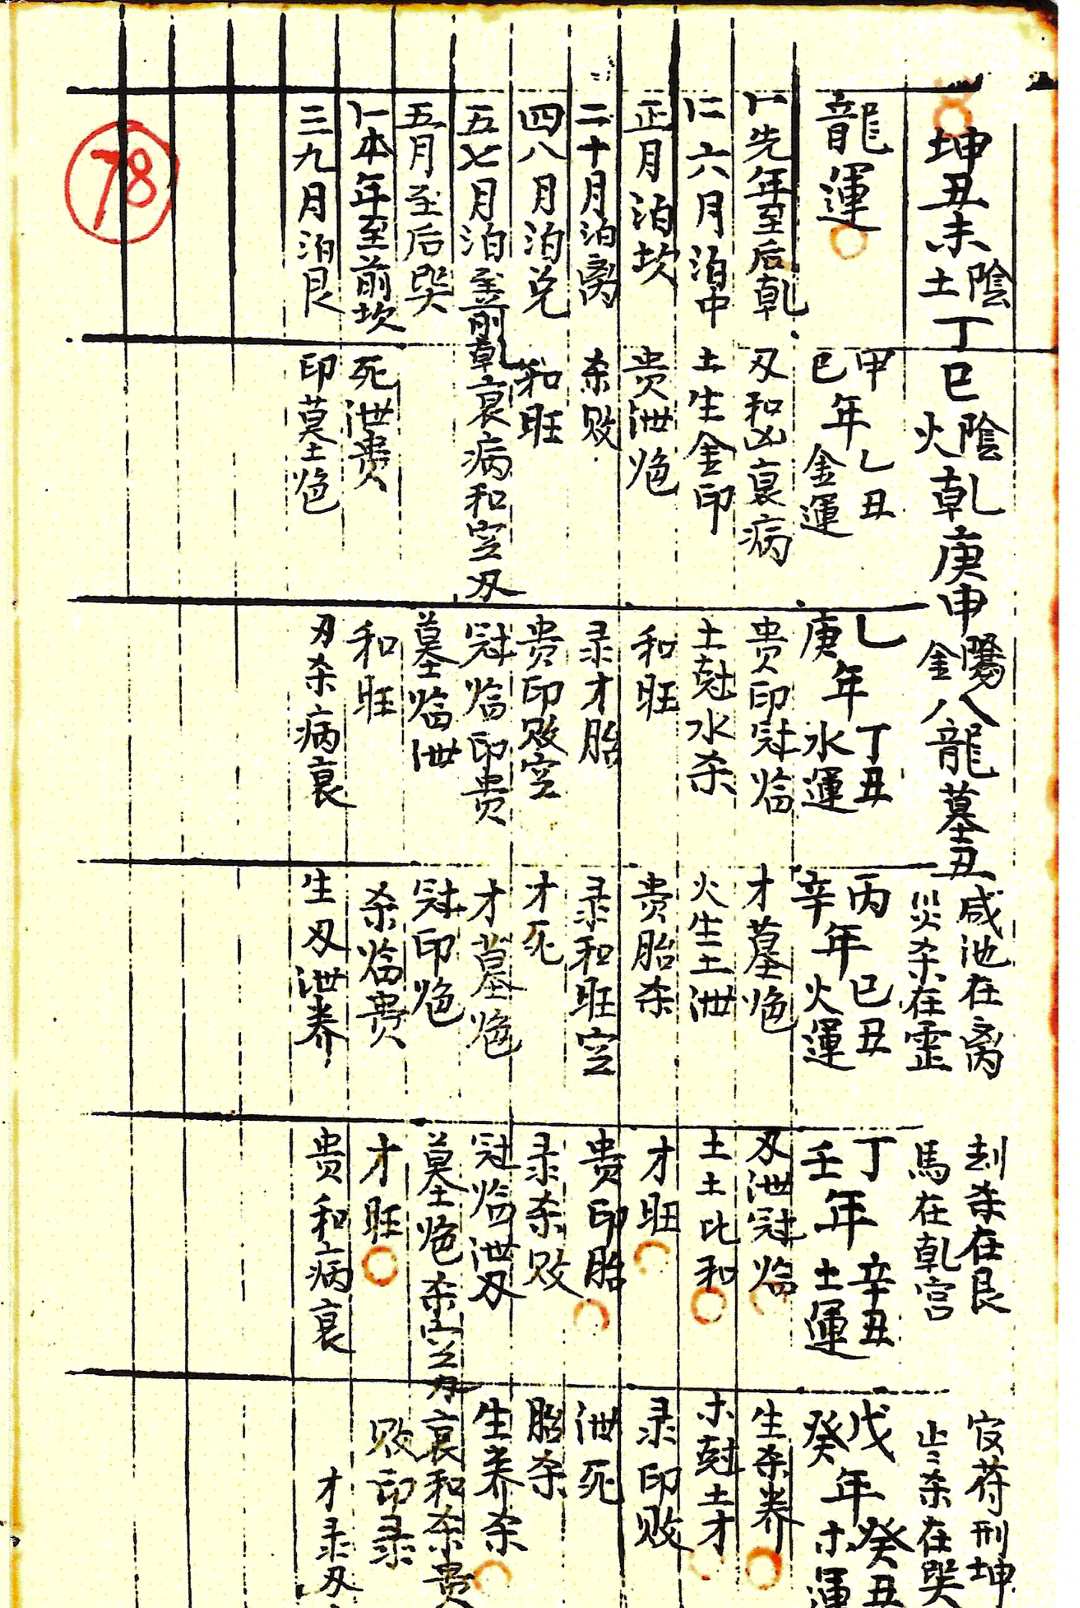 坤丑未土陰丁巳火陰乾庚申金陽八龍墓丑
咸池在离
災杀在霊
刦杀在艮
馬在乾宫
符刑坤
杀在巽
龍運
甲巳年乙丑金運
乙庚年丁丑水運
丙辛年巳丑火運
丁壬年辛丑土運
戊癸年癸丑木運
先年至后乾
刃和凶衰病
贵印冠临
才墓绝
刃泄冠临
生杀养
六月泊中
土生金印
土尅水杀
火生土泄
土土比和
木尅土才
正月泊坎
贵泄绝
和旺
贵胎杀
才旺
录印败
二十月泊离
杀败
录才胎
录和旺空
贵印胎
泄死
四八月泊兑
和旺
贵印败空
才死
录杀败
胎杀
五七月泊至前乾
衰病和空刃
冠临印贵
才墓绝
冠临泄刃
生养杀
五月至后巽
墓临泄
冠印绝
墓绝杀空刃
衰和杀贵
本年至前坎
死泄贵
和旺
杀临贵
才旺
败印录
三九月泊艮
印墓绝
刃杀病衰
生刃泄养
贵和病衰
才录刃
78